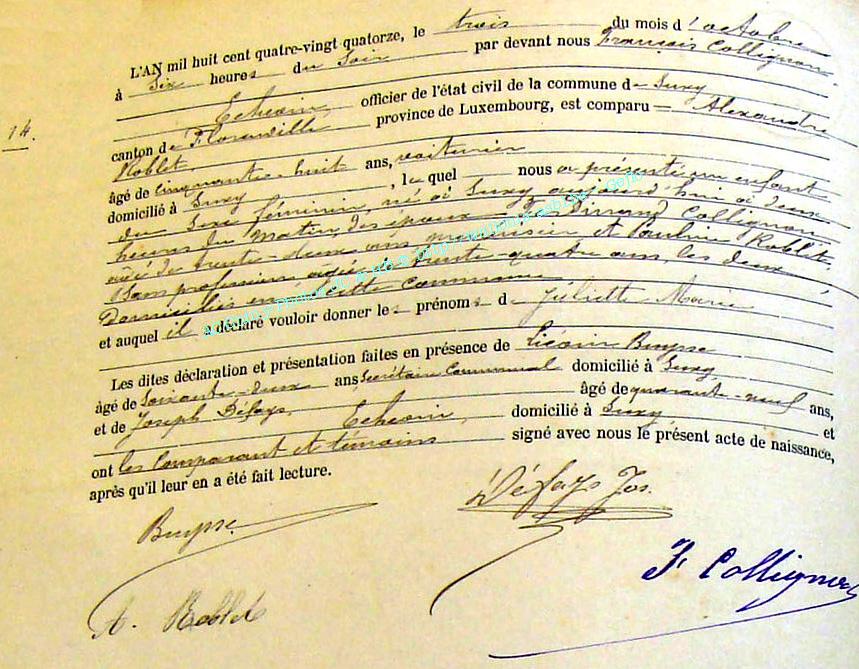 L'AN mil huit cent quatre-vingt quatorze, le trois du mois d'octobre
à Six heures du Soir par devant nous François Collignon
Echevin, officier de l'état civil de la commune de Suxy
canton de Florenville province de Luxembourg, est comparu Alexandre
14.
Roblet
âgé de cinquante-huit ans, voiturier
domicilié à Suxy, lequel nous a présenté un enfant
du Sexe féminin, né à Suxy aujourd'hui à deux
heures du matin, des époux Ferdinand Collignon
âgé de trente-deux ans et Pauline Roblet,
Sans profession âgée de trente-quatre ans, les deux
Domiciliés en cette commune
et auquel il a déclaré vouloir donner les prénoms de Juliette Marie
Les dites déclaration et présentation faites en présence de Buysse
âgé de Soixante-deux ans Secrétaire Communal domicilié à Suxy
et de Joseph Défays, âgé de quarante-neuf ans,
Echevin, domicilié à Suxy et
ont les Comparant et témoins signé avec nous le présent acte de naissance,
après qu'il leur en a été fait lecture.
Buysse
Défays Jos.
F. Collignon
A. Roblet